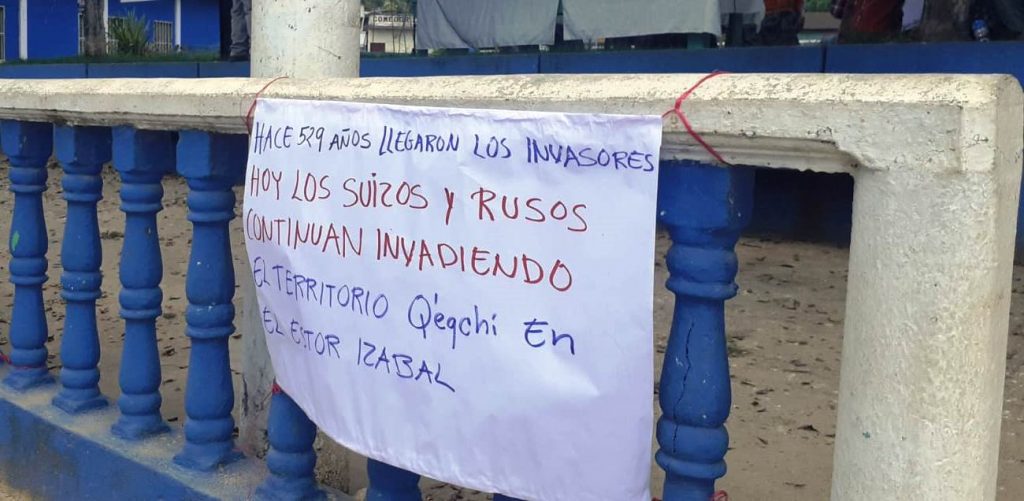 COMEDOR
HACE 529 AÑOS LLEGARON LOS INVASORES
HOY LOS SUIZOS Y RUSOS
CONTINUAN INVADIENDO
EL TERRITORIO Q'eqchi En
EL ESTOR IZABAL